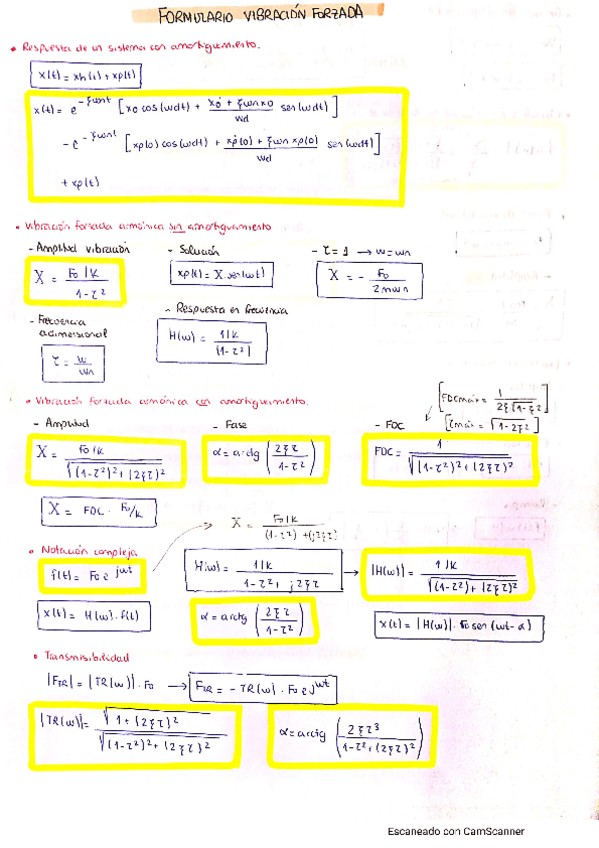 FORMULARIO VIBRACIÓN FORZADA
• Respuesta de un sistema con amortiguamiento.
x(t) = xh(t) + xp(t)
x(t) = e^-ξωnt [x0 cos(ωdt) + (ẋ0 + ξωn x0)/ωd sen(ωdt)]
- e^-ξωnt [xp(0) cos(ωdt) + (ẋp(0) + ξωn xp(0))/ωd sen(ωdt)]
+ xp(t)
• Vibración forzada armónica sin amortiguamiento
- Amplitud vibración - Solución - τ = 1 → ω = ωn
X = (F0/K)/(1-τ²) xp(t) = X sen(ωt) X = - F0/(2mωn)
- Frecuencia adimensional - Respuesta en frecuencia
τ = ω/ωn H(ω) = (1/K)/(1-τ²)
[FDCmáx = 1/(2ξ√(1-ξ²))]
• Vibración forzada armónica con amortiguamiento.
[τmáx = √(1-2ξ²)]
- Amplitud - Fase - FDC
X = (F0/K)/√((1-τ²)²+(2ξτ)²) α = arctg (2ξτ/(1-τ²)) FDC = 1/√((1-τ²)²+(2ξτ)²)
X = FDC · F0/K
X = (F0/K)/((1-τ²)+(j2ξτ))
• Notación compleja
f(t) = F0 e^jωt H(ω) = (1/K)/(1-τ²+j2ξτ) → |H(ω)| = (1/K)/√((1-τ²)+(2ξτ)²)
x(t) = H(ω) · f(t) α = arctg (2ξτ/(1-τ²)) x(t) = |H(ω)| · F0 sen(ωt-α)
• Transmisibilidad
|FTR| = |TR(ω)| · F0 → FTR = - TR(ω) · F0 e^jωt
|TR(ω)| = √(1+(2ξτ)²)/√((1-τ²)²+(2ξτ)²) α = arctg (2ξτ³/(1-τ²+(2ξτ)²))
Escaneado con CamScanner